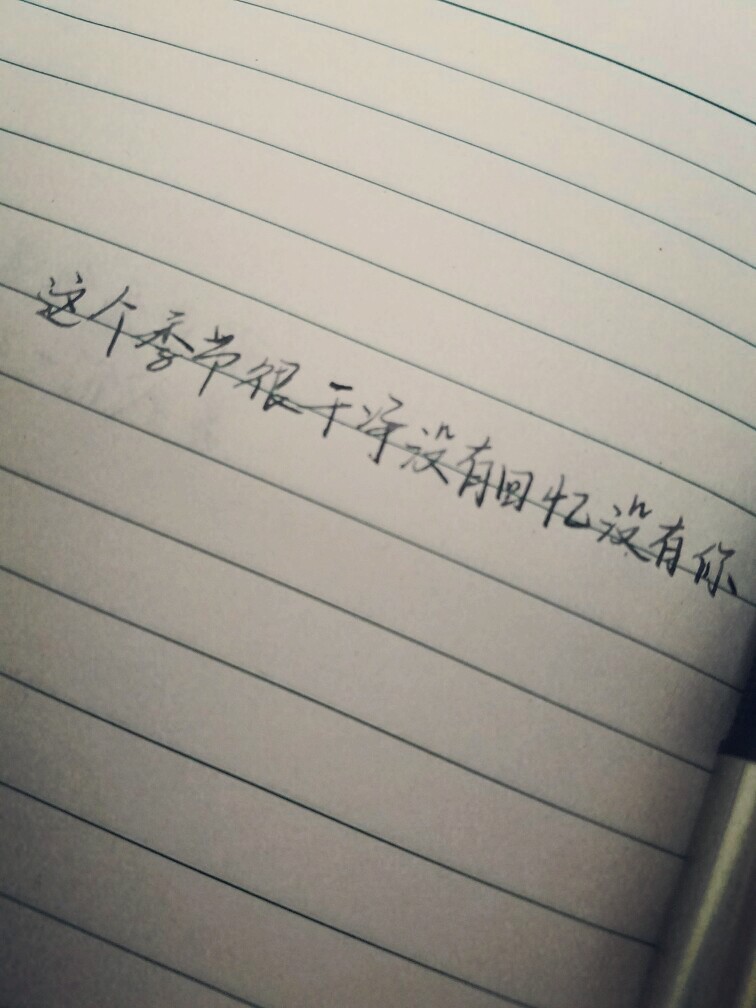 这个季节很干净没有回忆没有你